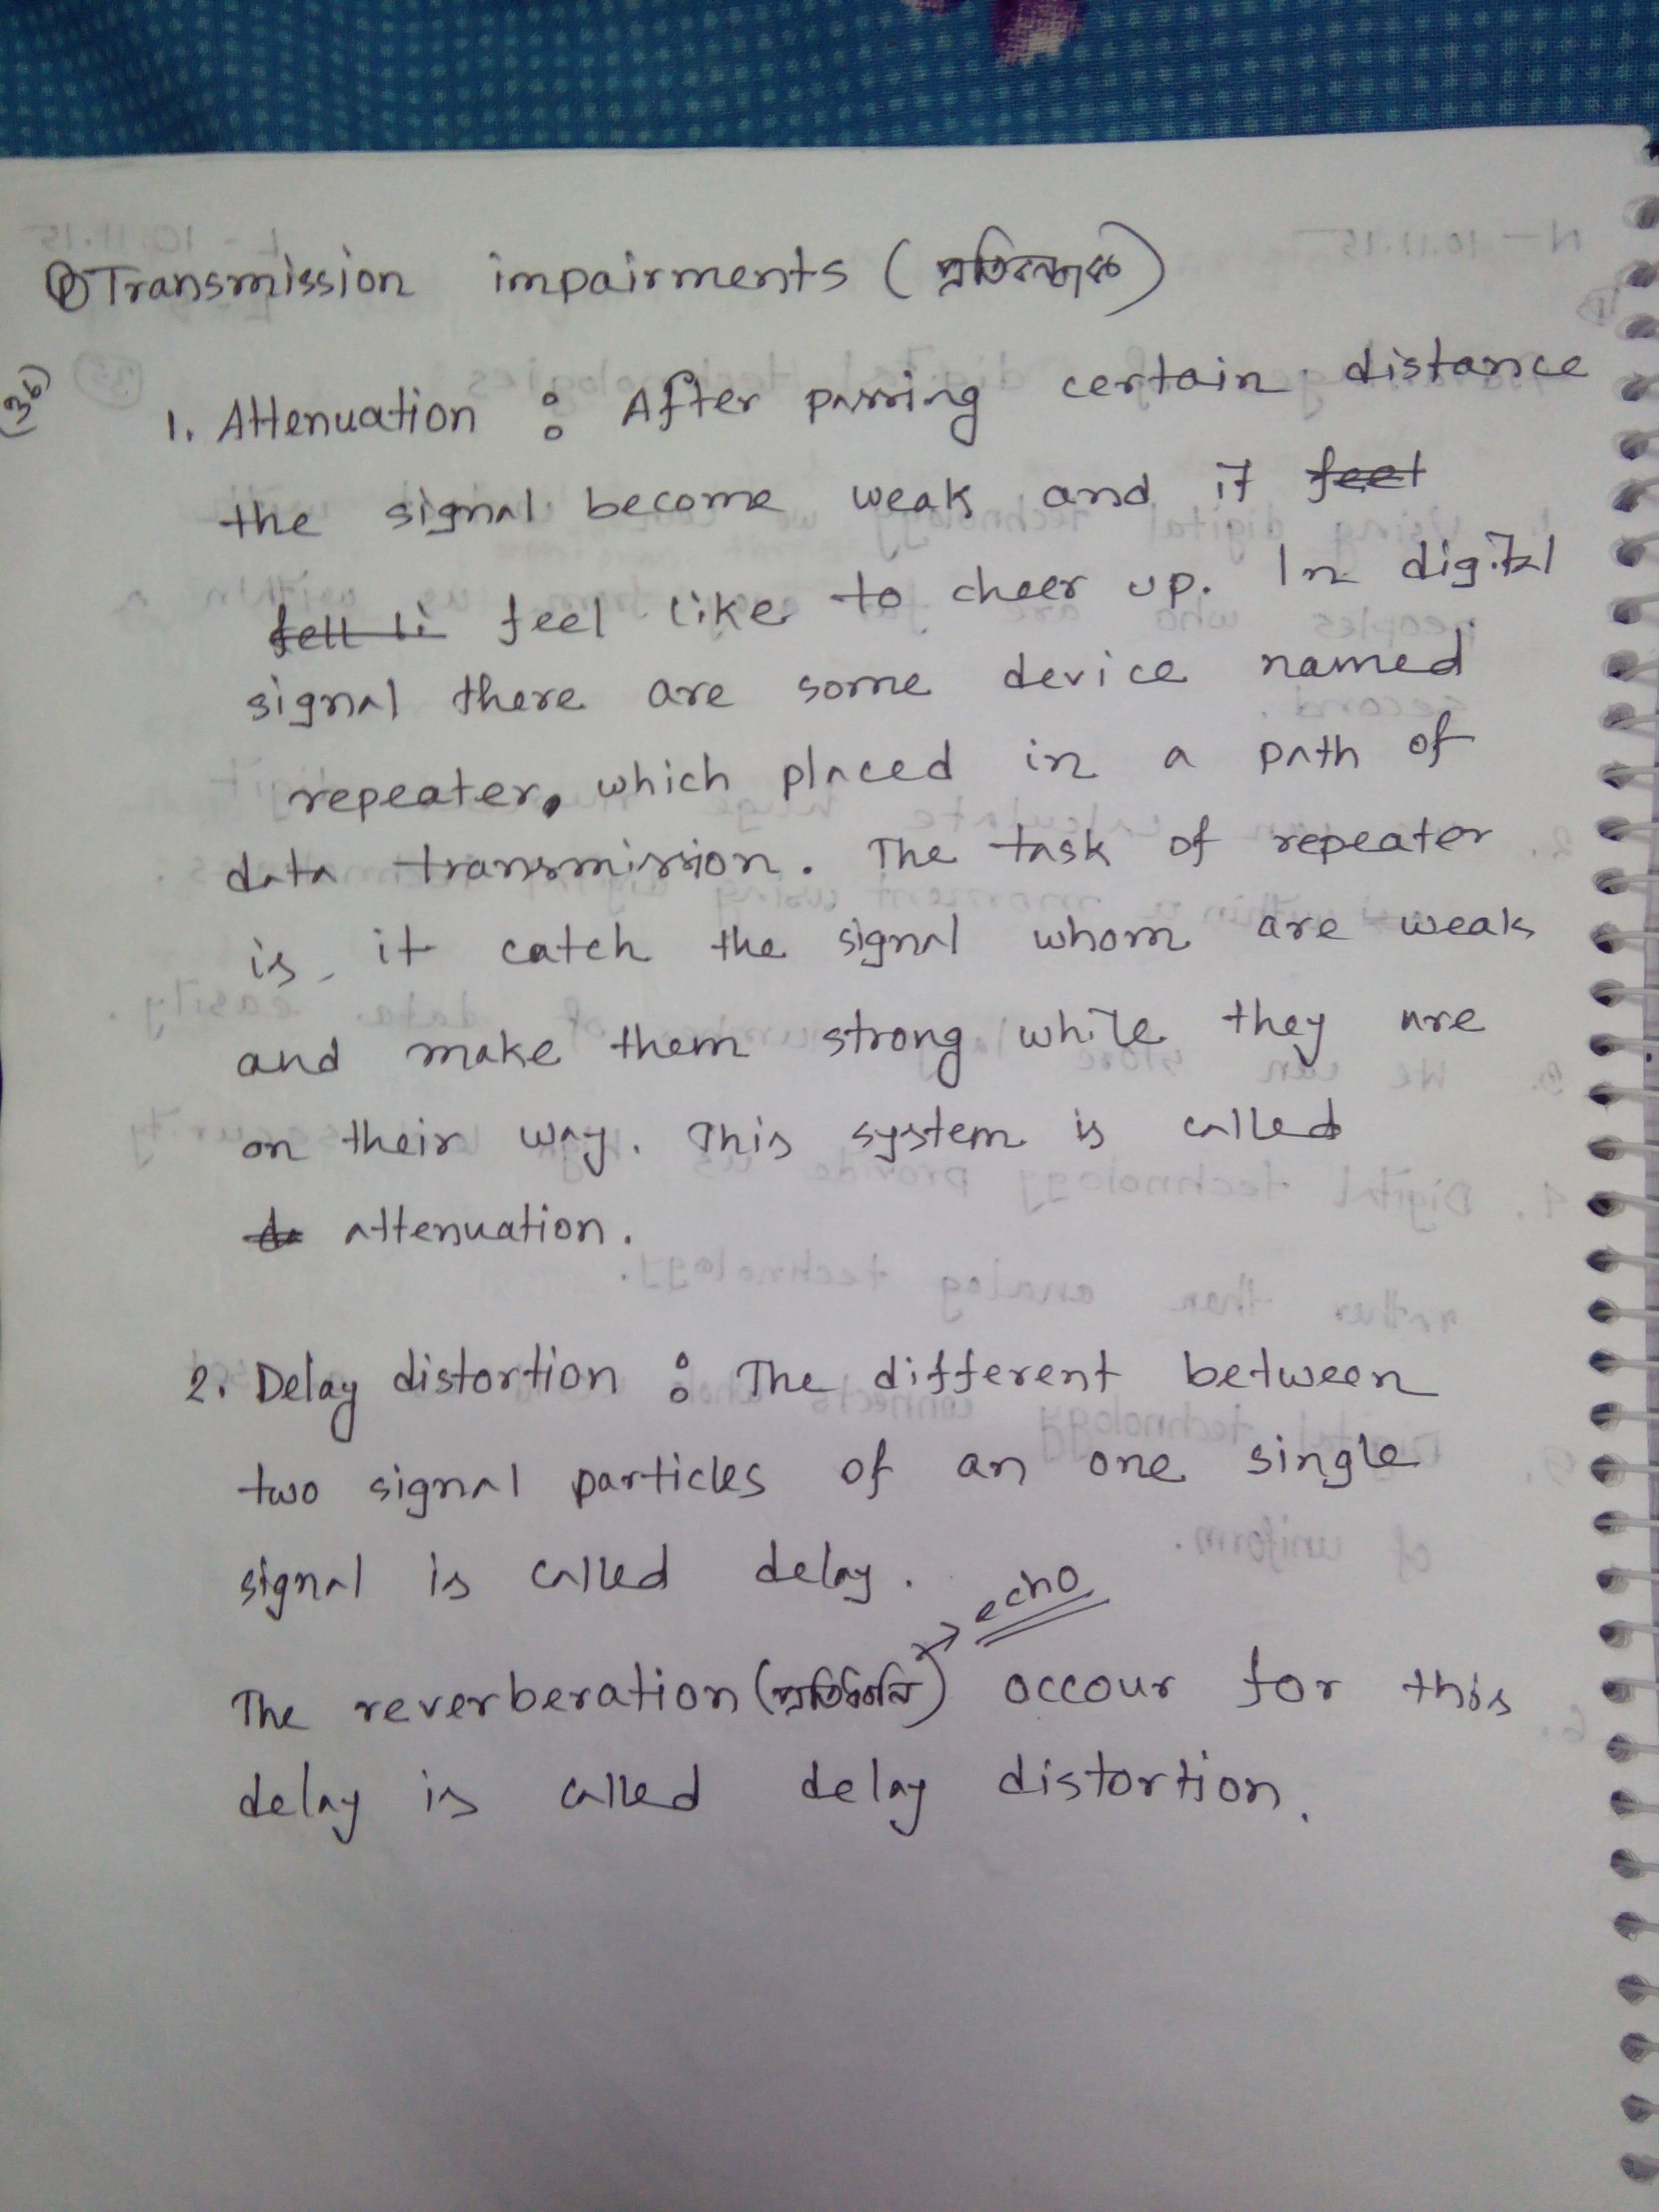 Transmission impairments (প্রতিবন্ধক)
(36)
1. Attenuation : After passing certain distance
the signal become weak and it feet
fell li feel like to cheer up. In digital
signal there are some device named
repeater, which placed in a path of
data transmission. The task of repeater
is, it catch the signal whom are weak
and make them strong while they are
on their way. This system is called
attenuation.
2. Delay distortion : The different between
two signal particles of an one single
signal is called delay.
echo
The reverberation (প্রতিধ্বনি) → occour for this
delay is called delay distortion.